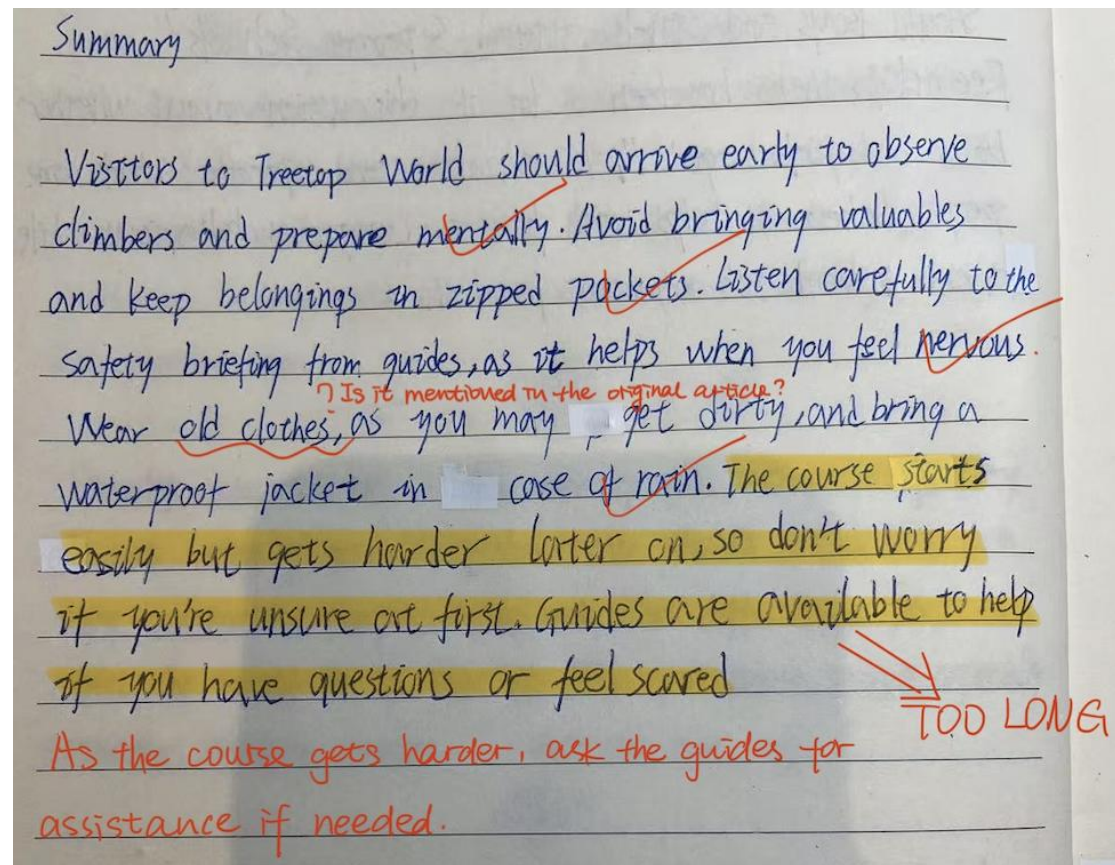 Summary
Visitors to Treetop World should arrive early to observe
climbers and prepare mentally. Avoid bringing valuables
and keep belongings in zipped pockets. Listen carefully to the
safety briefing from guides, as it helps when you feel nervous.
? Is it mentioned in the original article?
Wear old clothes, as you may get dirty, and bring a
waterproof jacket in case of rain. The course starts
easily but gets harder later on, so don't worry
if you're unsure at first. Guides are available to help
if you have questions or feel scared
TOO LONG
As the course gets harder, ask the guides for
assistance if needed.